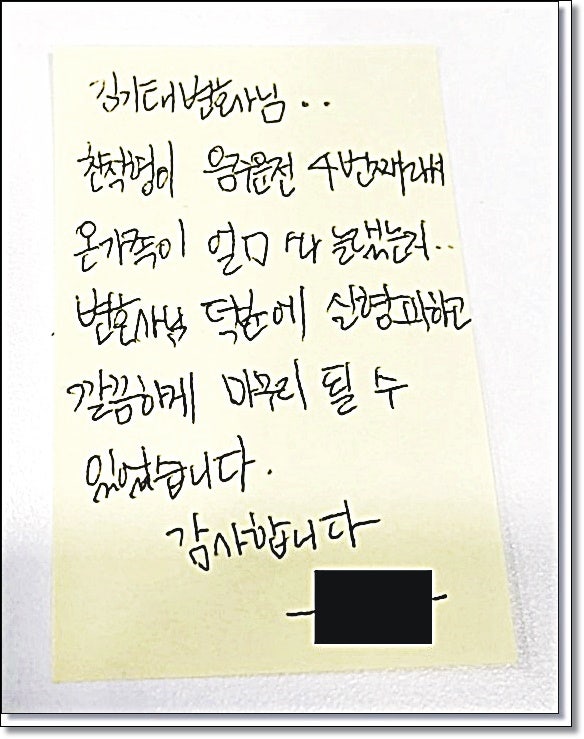 김기태변호사님..
찬학형이 음주운전 4번째래서
온가족이 얼마나 놀랐는지..
변호사님 덕분에 실형피하고
깔끔하게 마무리 될 수
있었습니다.
감사합니다